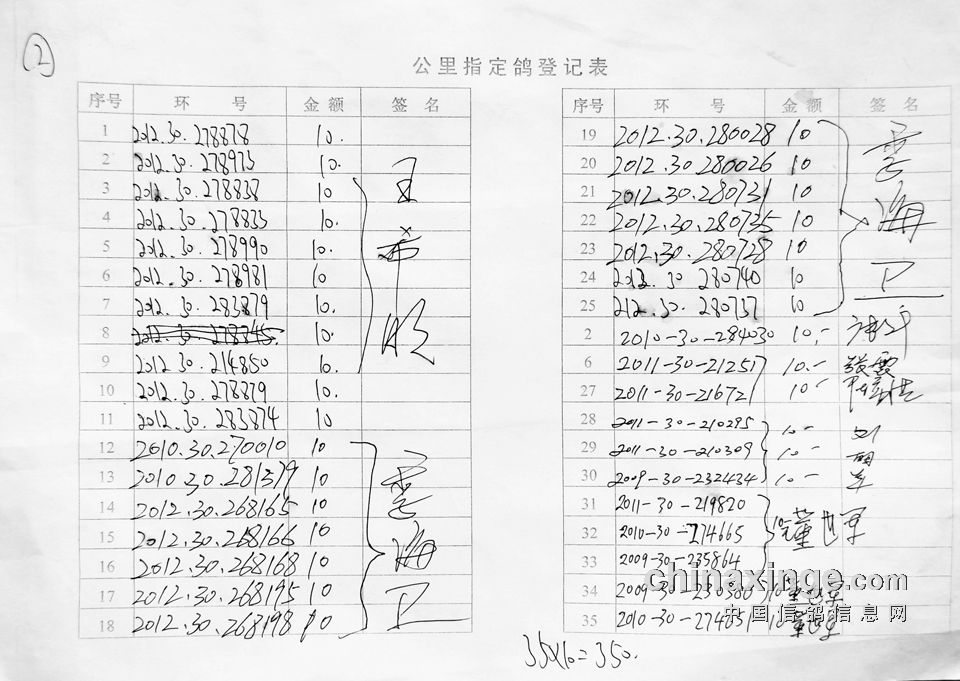 2
公里指定鸽登记表
序号 环 号 金额 签名
1 2012.30.278878 10.
2 2012.30.278973 10.
3 2012.30.278838 10
4 2012.30.278833 10.
5 2012.30.278990 10.
6 2012.30.278981 10
7 2012.30.283879 10.
8 2012.30.278845 10.
9 2012.30.214850 10.
10 2012.30.278879 10
11 2012.30.283874 10
12 2010.30.270010 10
13 2010.30.281379 10
14 2012.30.268165 10
15 2012.30.268166 10
16 2012.30.268168 10
17 2012.30.268195 10
18 2012.30.268198 10
海
卫
序号 环 号 金额 签名
19 2012.30.280028 10
20 2012.30.280026 10
21 2012.30.280731 10
22 2012.30.280735 10
23 2012.30.280728 10
24 2012.30 280740 10
25 212.30.280737 10
海
卫
2 2010-30-284030 10.-
6 2011-30-21251 10.- 張霞
27 2011-30-216721 10-
28 2011-30-210295 10-
29 2011-30-210309 10-
30 2009-30-232434 10-
刘
丽
31 2011-30-219820
32 2010-30-274665 10 董世军
33 2009-30-235864
34 2009-30-230300 10 董世军
35 2010-30-274651 10 董世军
35×10=350.
chinaxinge.com
中国信鸽信息网